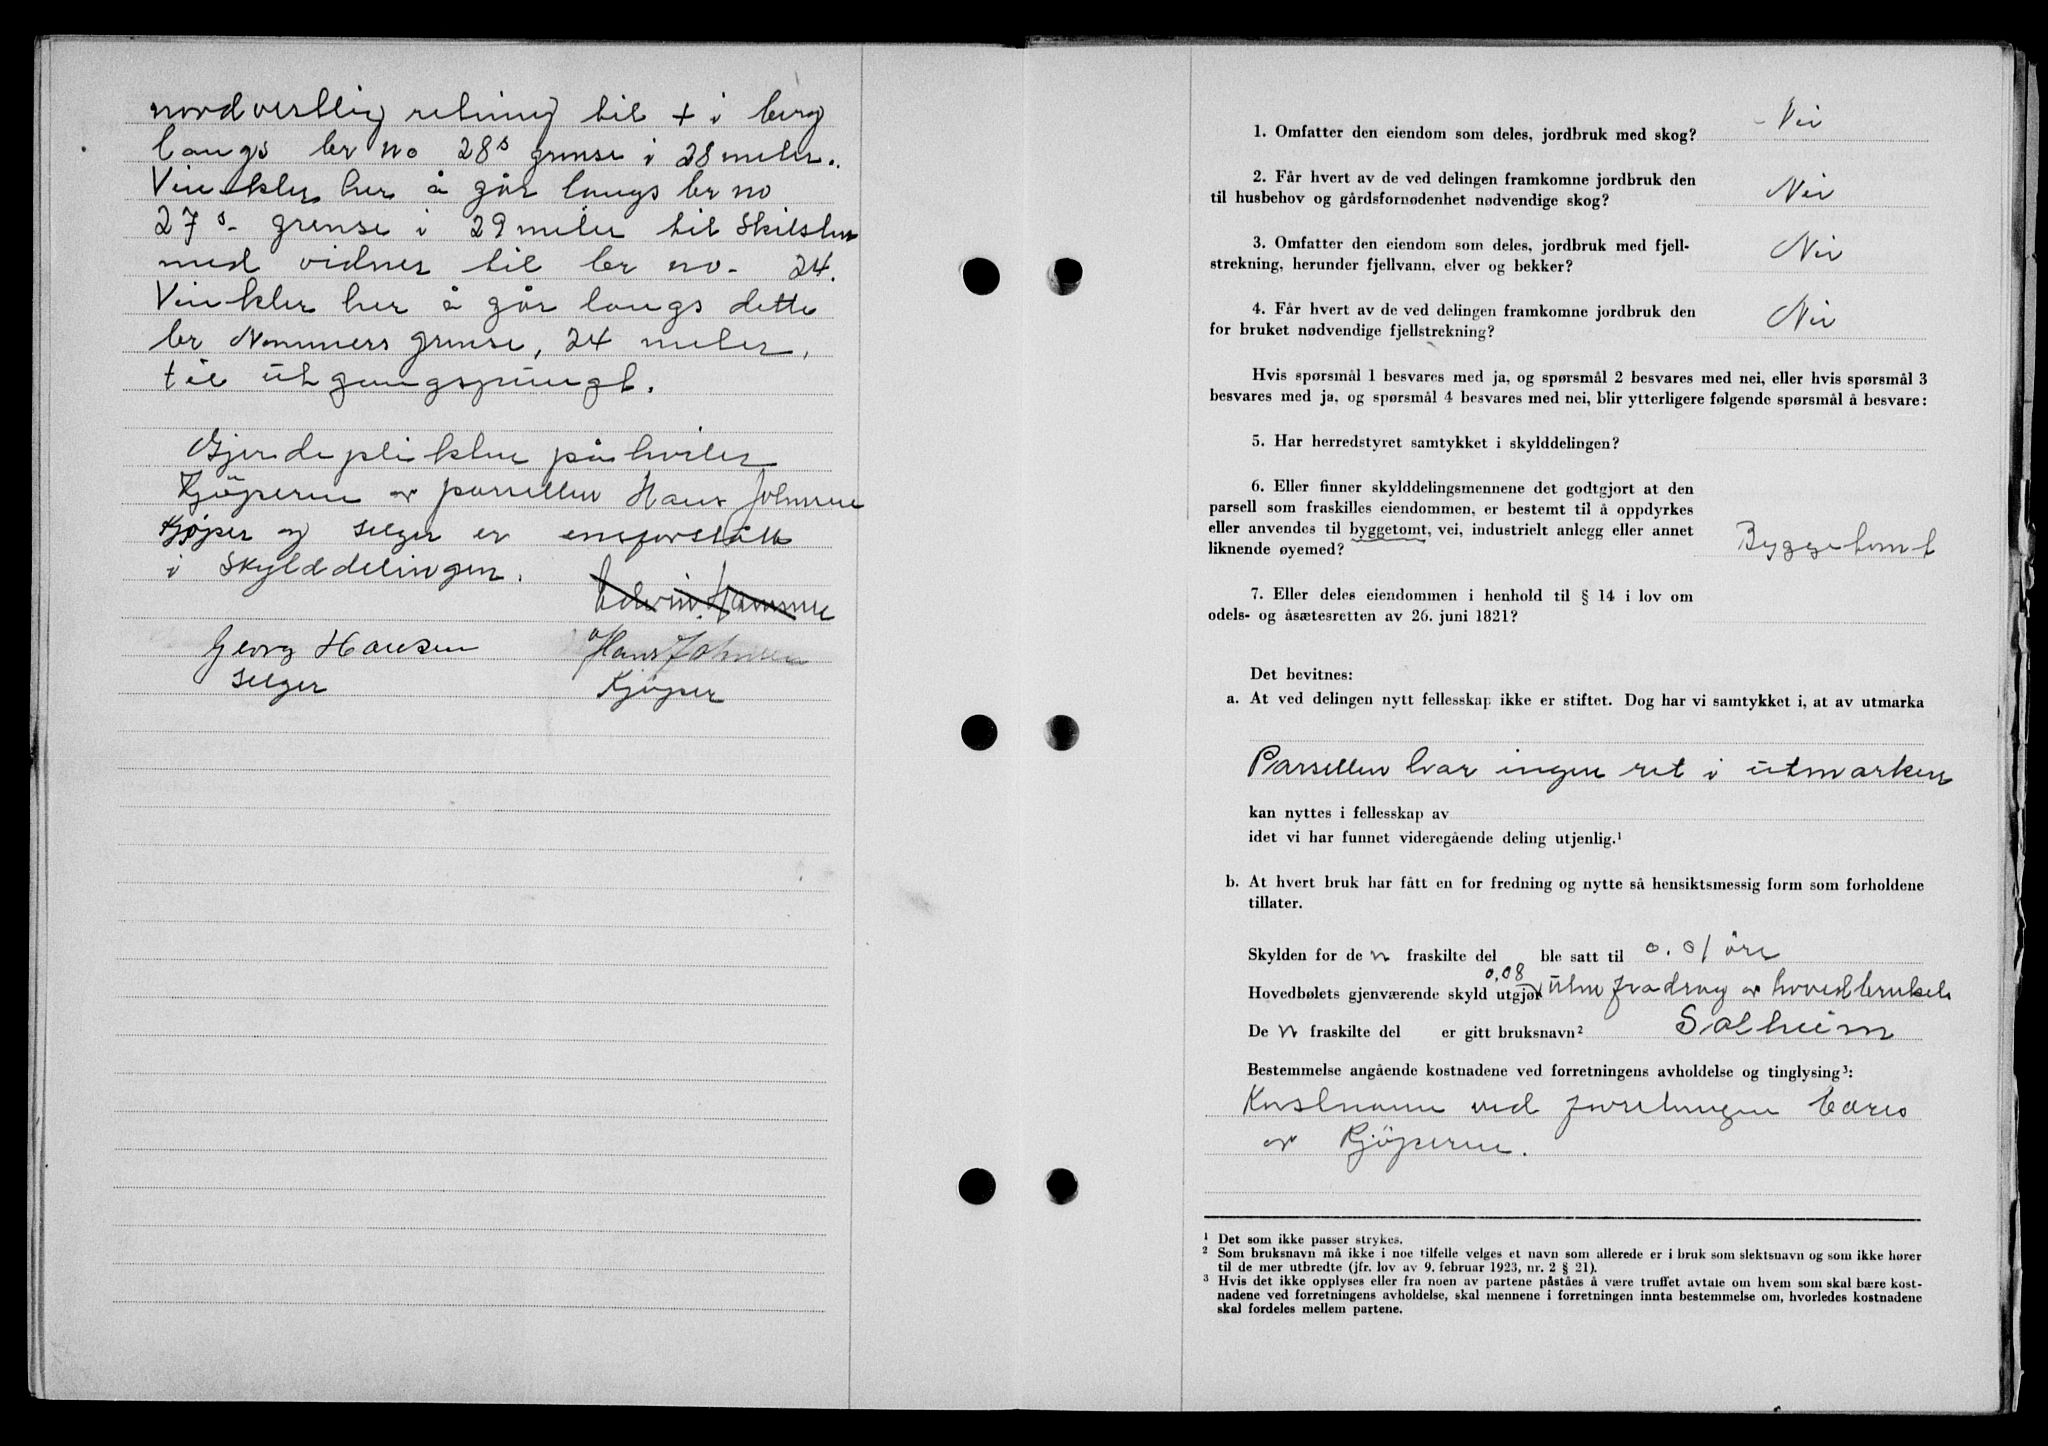 nordvestlig retning til + i berg
langs br no 28s grense i 28 meter.
Vinkler her å går langs br no
27s- grense i 29 meter til Skilsten
med vidner til br no- 24.
Vinkler her å går langs dette
br Nommers grense, 24 meter,
til utgangspungt.
Gjerdeplikten påhviler
Kjöperen av parsellen Hans Johnsen
Kjøper og selger er ensforstått
i Skylddelingen.
Edvin Hammer
Georg Hansen
Selger
Hans Johnsen
Kjøper
1. Omfatter den eiendom som deles, jordbruk med skog? Nei
2. Får hvert av de ved delingen framkomne jordbruk den
til husbehov og gårdsfornødenhet nødvendige skog? Nei
3. Omfatter den eiendom som deles, jordbruk med fjell-
strekning, herunder fjellvann, elver og bekker? Nei
4. Får hvert av de ved delingen framkomne jordbruk den
for bruket nødvendige fjellstrekning? Nei
Hvis spørsmål 1 besvares med ja, og spørsmål 2 besvares med nei, eller hvis spørsmål 3
besvares med ja, og spørsmål 4 besvares med nei, blir ytterligere følgende spørsmål å besvare:
5. Har herredstyret samtykket i skylddelingen?
6. Eller finner skylddelingsmennene det godtgjort at den
parsell som fraskilles eiendommen, er bestemt til å oppdyrkes
eller anvendes til byggetomt, vei, industrielt anlegg eller annet
liknende øyemed? Byggetomt
7. Eller deles eiendommen i henhold til § 14 i lov om
odels- og åsætesretten av 26. juni 1821?
Det bevitnes:
a. At ved delingen nytt fellesskap ikke er stiftet. Dog har vi samtykket i, at av utmarka
Parsellen har ingen ret i utmarken
kan nyttes i fellesskap av
idet vi har funnet videregående deling utjenlig.¹
b. At hvert bruk har fått en for fredning og nytte så hensiktsmessig form som forholdene
tillater.
Skylden for den fraskilte del ble satt til 0.01 öre
Hovedbølets gjenværende skyld utgjør 0,08 uten fradrag av hovedbruket
De n fraskilte del er gitt bruksnavn² Solheim
Bestemmelse angående kostnadene ved forretningens avholdelse og tinglysing³:
Kostnane ved forretningen bæres
av Kjöperen.
¹ Det som ikke passer strykes.
² Som bruksnavn må ikke i noe tilfelle velges et navn som allerede er i bruk som slektsnavn og som ikke hører
til de mer utbredte (jfr. lov av 9. februar 1923, nr. 2 § 21).
³ Hvis det ikke opplyses eller fra noen av partene påståes å være truffet avtale om hvem som skal bære kost-
nadene ved forretningens avholdelse, skal mennene i forretningen innta bestemmelse om, hvorledes kostnadene
skal fordeles mellem partene.